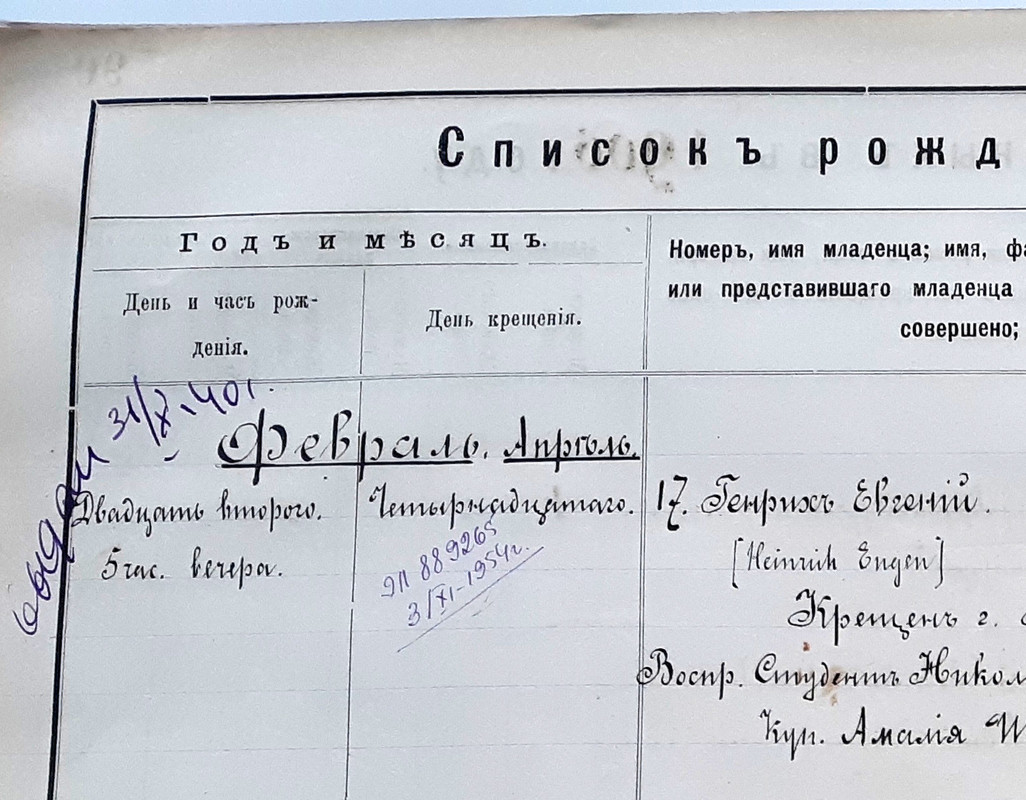 Списокъ рожд
Годъ и мѣсяцъ.
День и часъ рож-
денія.
День крещенія.
Номеръ, имя младенца; имя, фа
или представившаго младенца
совершено;
выдан 31/X-40г.
Февраль. Апрѣль.
Двадцать второго.
5 час. вечера.
Четырнадцатаго.
ЭЛ 889265
3/XI-1954г.
17. Генрихъ Евгеній.
[Heinrich Eugen]
Крещенъ г.
Воспр. Студентъ Никол
Куп. Амалія